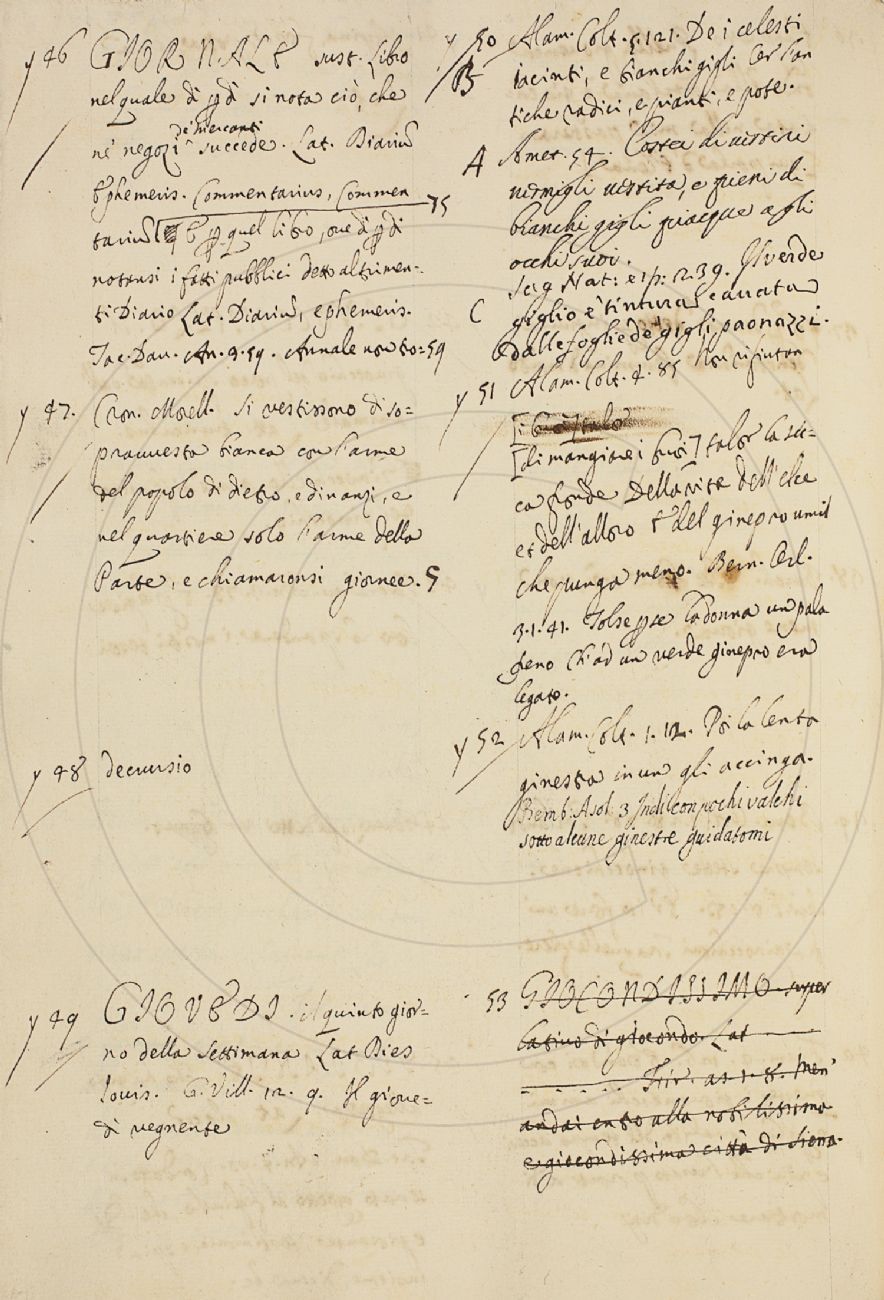 y 46 GIORNALE sust. Libro
nel quale dì p dì si nota ciò, che
ne' negozi de' mercanti succede. Lat. Diariu
Ephemeris. Commentarius, Commen
tariu E p quel libro, ove dì p dì 75
notansi i fatti pubblici detto altrimen-
ti Diario Lat. Diariu, ephemeris.
Tac. Dav. An. 3. 59. Annale non to= 59
y 47. Cron. Morell. Si vestissono di so-
pravvesta bianca con l'arme
del popolo di dietro, e dinanzi, e
nel quartiere solo l'arme della
Parte, e chiamaronsi giornee. 5
y 48 decursio
y 49 GIOVEDI. il quinto gior=
no della settimana Lat Dies
Iovis. G. Vill. 12. 9. Il giove=
dì vegnente
y 50 Alam. Colt. 5. 121. De i celesti
B iacinti, e bianchi gigli
tiche radici, e pianti, e pote.
A Amet. 54. Costei di vestiri
vermigli vestita, e pieni di
bianchi gigli piacque agli
occhi suoi.
C Sag. Nat: esp: 239. Il verde
giglio è tintura cavata
dalle foglie de' gigli paonazzi.
y 51 Alam. Colt. 4. 85 Non rifiutan
[di mangiare i buoi] talor la sec=
ca fronde Della vite dell'elce
et dell'alloro E del ginepro umil
che punga meno. Bern. Orl.
3. 1. 41. Tolse la donna un pala
freno Ch'ad un verde ginepro era
legato.
y 52 Alam. Colt. 1. 12. Poi la lenta
ginestra in un gli accinga.
Bemb. Asol. 3 Indi con pochi valchi
sotto alcune ginestre guidatomi
53 GIOCONDISSIMO super
lativo di giocondo. Lat
Fir. as. 1. 8. Men'
andai entro alla nobilissima
e giocondissima città di Siena.